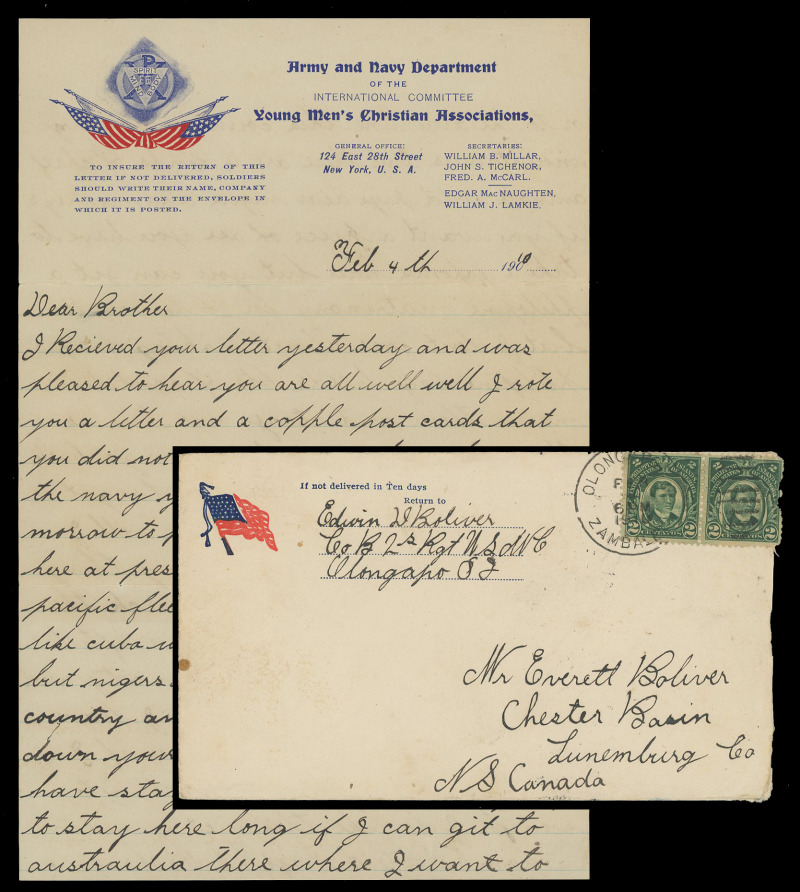 SPIRIT
MIND
BODY
Army and Navy Department
OF THE
INTERNATIONAL COMMITTEE
Young Men's Christian Associations,
TO INSURE THE RETURN OF THIS
LETTER IF NOT DELIVERED, SOLDIERS
SHOULD WRITE THEIR NAME, COMPANY
AND REGIMENT ON THE ENVELOPE IN
WHICH IT IS POSTED.
GENERAL OFFICE:
124 East 28th Street
New York, U. S. A.
SECRETARIES:
WILLIAM B. MILLAR,
JOHN S. TICHENOR,
FRED. A. McCARL.
EDGAR MacNAUGHTEN,
WILLIAM J. LAMKIE.
Feb 4 th 1910
Dear Brother
I Recieved your letter yesterday and was
pleased to hear you are all well well I rote
you a letter and a copple post cards that
you did not
the navy y
morrow to p
here at pres
pacific flee
like cuba w
but nigers.
country an
down yours
have stay
to stay here long if I can git to
austraulia there where I want to
If not delivered in Ten days
Return to
Edwin D Boliver
Co B 2 Rgt U S M C
Olongapo P I
OLONG
ZAMBA
2 2
2 2
Mr Everett Boliver
Chester Basin
Lunemburg Co
N S Canada